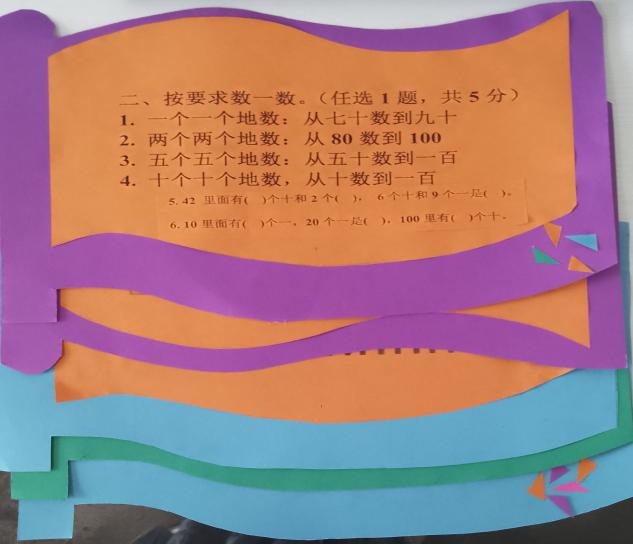 二、按要求数一数。（任选 1 题，共 5 分）
1. 一个一个地数：从七十数到九十
2. 两个两个地数：从 80 数到 100
3. 五个五个地数：从五十数到一百
4. 十个十个地数，从十数到一百
5. 42 里面有( )个十和 2 个( )， 6 个十和 9 个一是( )。
6. 10 里面有( )个一，20 个一是( )，100 里有( )个十。